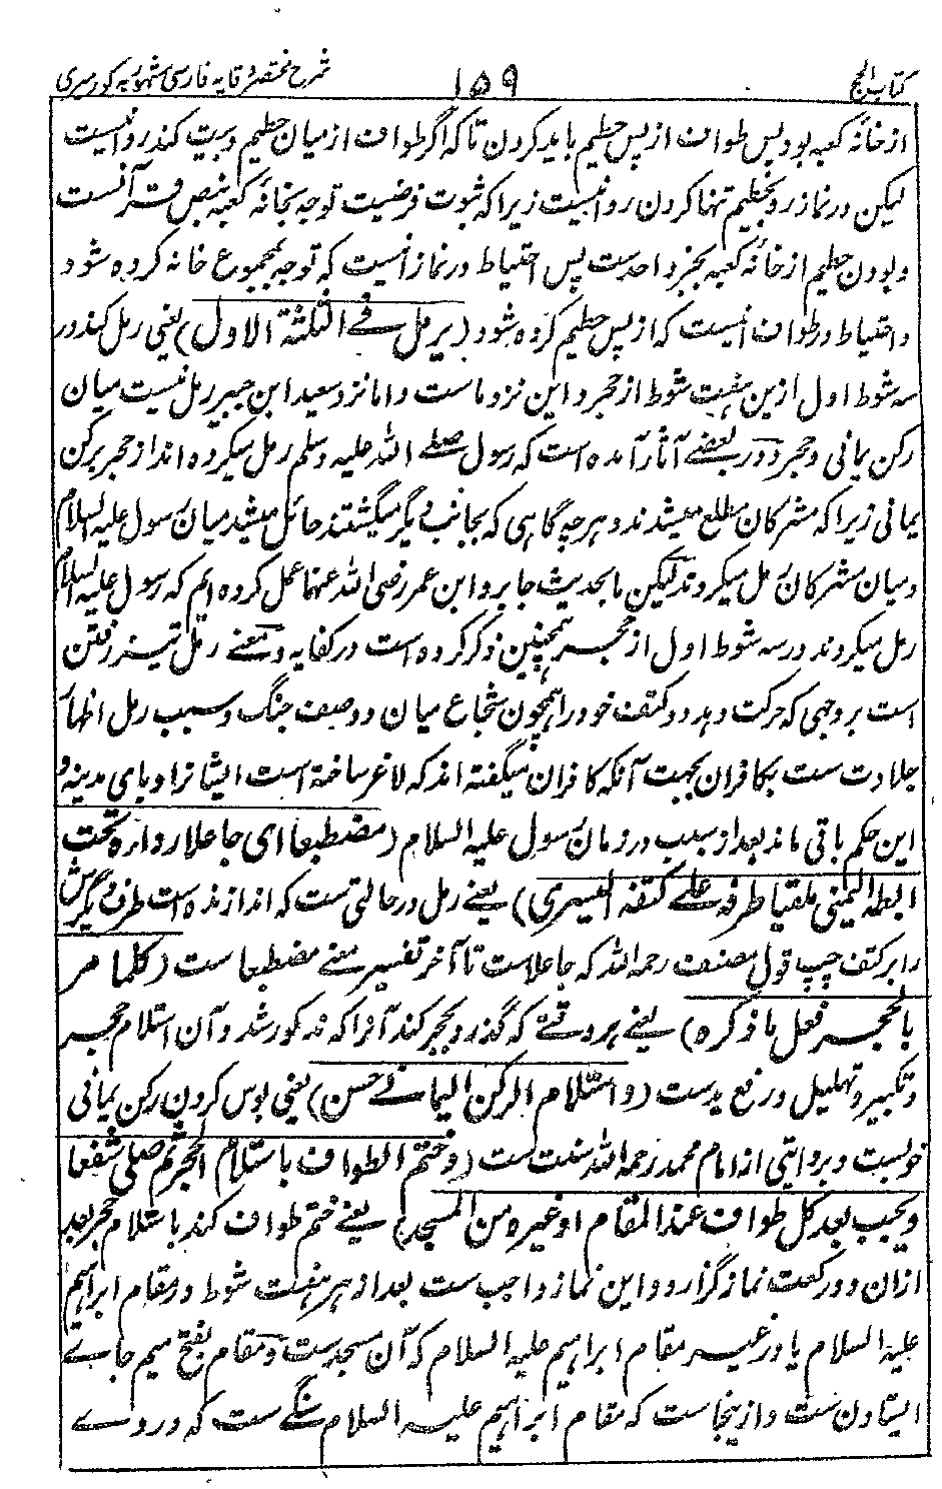 کتاب الحج ۱۵۹ شرح مختصر وقایه فارسی مشهور به کورسیری
از خانهٔ کعبه بود پس طواف از پس حطیم باید کردن تا که اگر طواف از میان حطیم و بیت کند روا نیست
لیکن در نماز رو بحطیم تنها کردن روا نیست زیرا که ثبوت فرضیت توجه بخانهٔ کعبه بنص قرآنست
و بودن حطیم از خانهٔ کعبه بخبر واحدست پس احتیاط در نماز آنست که توجه بمجموع خانه کرده شود
و احتیاط در طواف آنست که از پس حطیم کرده شود (یرمل فے الثلثة الاول) یعنی رمل کند در
سه شوط اول ازین هفت شوط از حجر و این نزد ماست و اما نزد سعید ابن جبیر رمل نیست میان
رکن یمانی و حجر و در بعضے آثار آمده است که رسول صلے الله علیه وسلم رمل میکرده اند از حجر برکن
یمانی زیرا که مشرکان مطلع میشدند و هر چه گاهی که بجانب دیگر میگشتند حائل میشد میان رسول علیه السلام
و میان مشرکان رمل میکردند لیکن ما بحدیث جابر و ابن عمر رضی الله عنهما عمل کرده ایم که رسول علیه السلام
رمل میکردند در سه شوط اول از حجر همچنین ذکر کرده است در کفایه و معنے رمل تیز رفتن
است بر وجهی که حرکت دهد دو کتف خود را همچون شجاع میان دو صف جنگ و سبب رمل اظهار
جلادت ست بکافران بجهت آنکه کافران میگفته اند که لاغر ساخته است ایشانرا وبای مدینه و
این حکم باقی ماند بعد از سبب در زمان رسول علیه السلام (مضطبعا ای جاعلا رداءه تحت
ابطه الیمنی ملقیا طرفه علے کتفه الیسری) یعنے رمل در حالتی ست که اندازنده است طرف دیگرش
را بر کتف چپ قول مصنف رحمه الله که جاعلاست تا آخر تفسیر معنے مضطبعا ست (کلما مر
بالحجر فعل ما ذکره) یعنے هر وقتے که گذر بحجر کند آنرا که مذکور شد و آن استلام حجر
و تکبیر و تهلیل و رفع یدست (و استلام الرکن الیمانے حسن) یعنی بوس کردن رکن یمانی
خوبست و بروایتی از امام محمد رحمه الله سنت ست (و ختم الطواف باستلام الحجر ثم صلی شفعا
و یجب بعد کل طواف عند المقام او غیره من المسجد) یعنے ختم طواف کند باستلام حجر بعد
ازان دو رکعت نماز گزارد و این نماز واجب ست بعد از هر هفت شوط در مقام ابراهیم
علیه السلام یا در غیر مقام ابراهیم علیه السلام که آن مسجدست و مقام بفتح میم جاے
ایستادن ست و ازینجاست که مقام ابراهیم علیه السلام سنگے ست که در وے